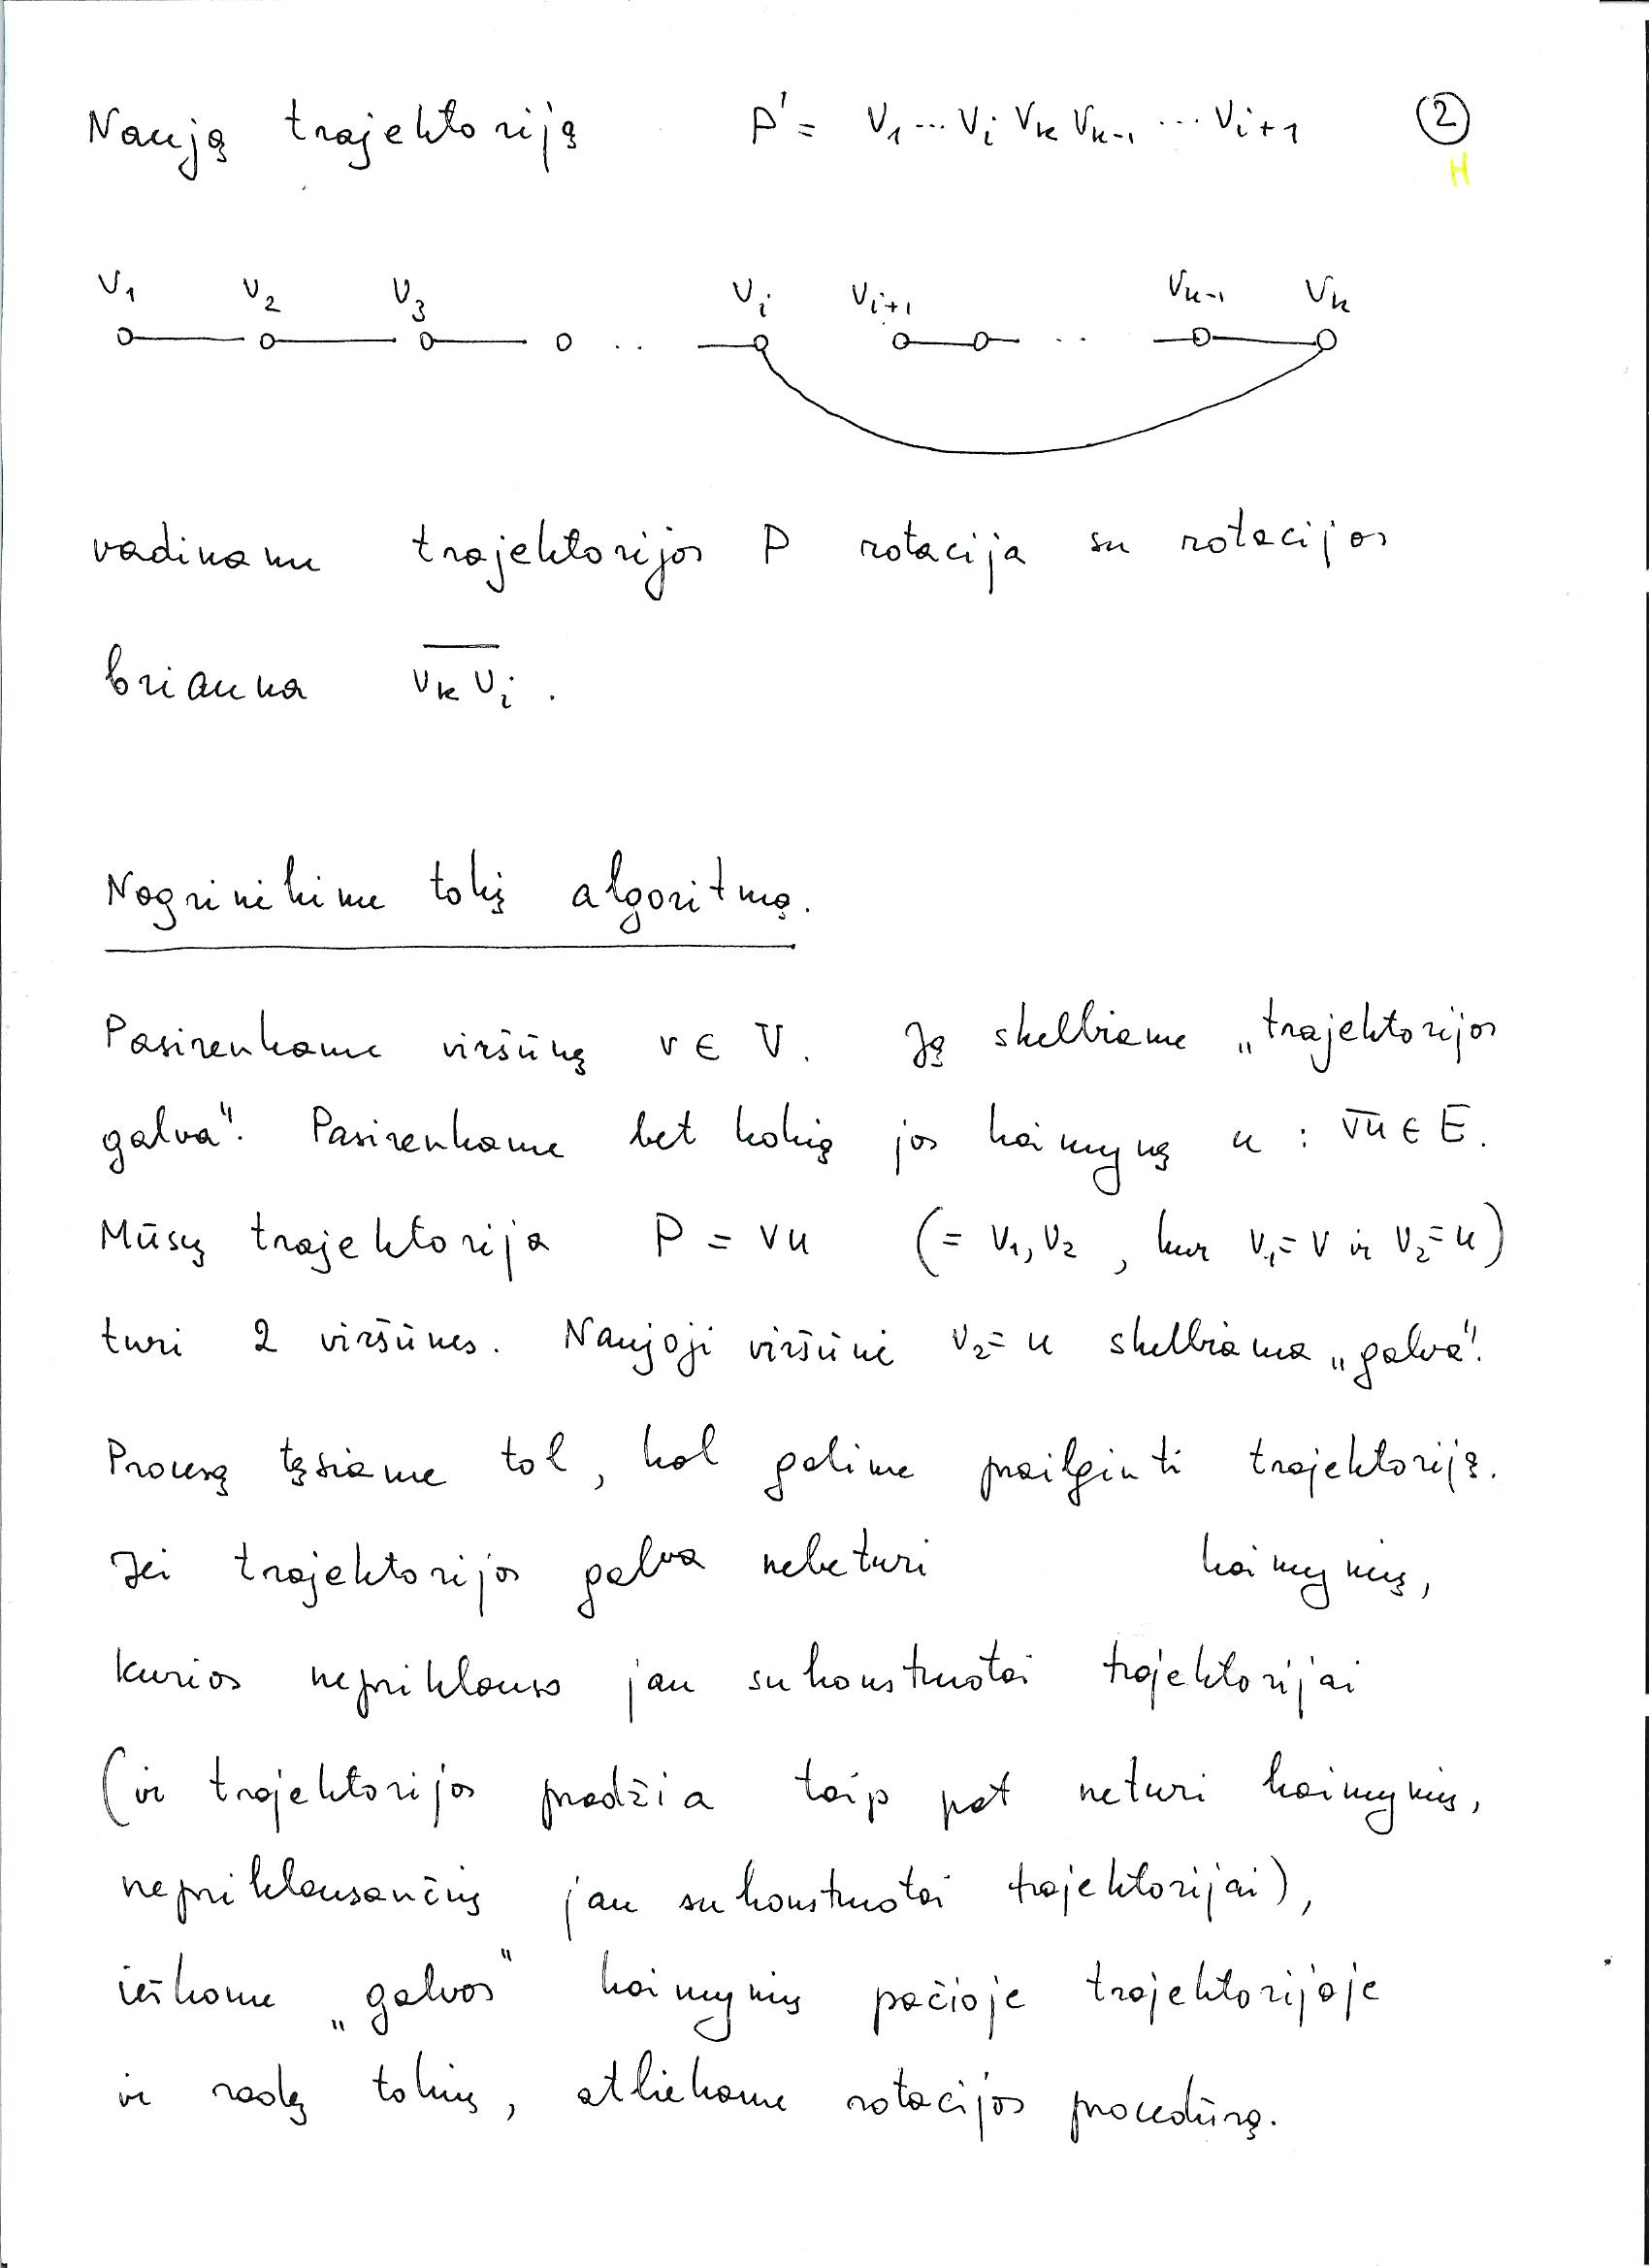 Naują trajektoriją P' = v₁ ... vᵢ vₖ vₖ₋₁ ... vᵢ₊₁ ②
H
v₁ v₂ v₃ vᵢ vᵢ₊₁ vₖ₋₁ vₖ
vadiname trajektorijos P rotacija su rotacijos
briauna v̅ₖ̅v̅ᵢ̅ .
Nagrinėkime tokį algoritmą.
Pasirenkame viršūnę v ∈ V. Ją skelbiame „trajektorijos
galva“. Pasirenkame bet kokią jos kaimynę u : v̅u̅ ∈ E.
Mūsų trajektorija P = vu (= v₁, v₂ , kur v₁ = v ir v₂ = u)
turi 2 viršūnes. Naujoji viršūnė v₂ = u skelbiama „galva“.
Procesą tęsiame tol, kol galime prailginti trajektoriją.
Jei trajektorijos galva nebeturi kaimynių,
kurios nepriklauso jau sukonstruotai trajektorijai
(ir trajektorijos pradžia taip pat neturi kaimynių,
nepriklausančių jau sukonstruotai trajektorijai),
ieškome „galvos“ kaimynių pačioje trajektorijoje
ir radę tokių, atliekame rotacijos procedūrą.